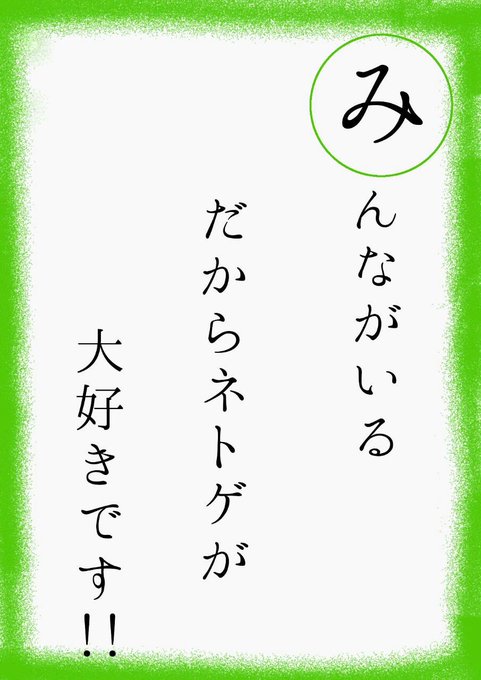 みんながいる
だからネトゲが
大好きです!!